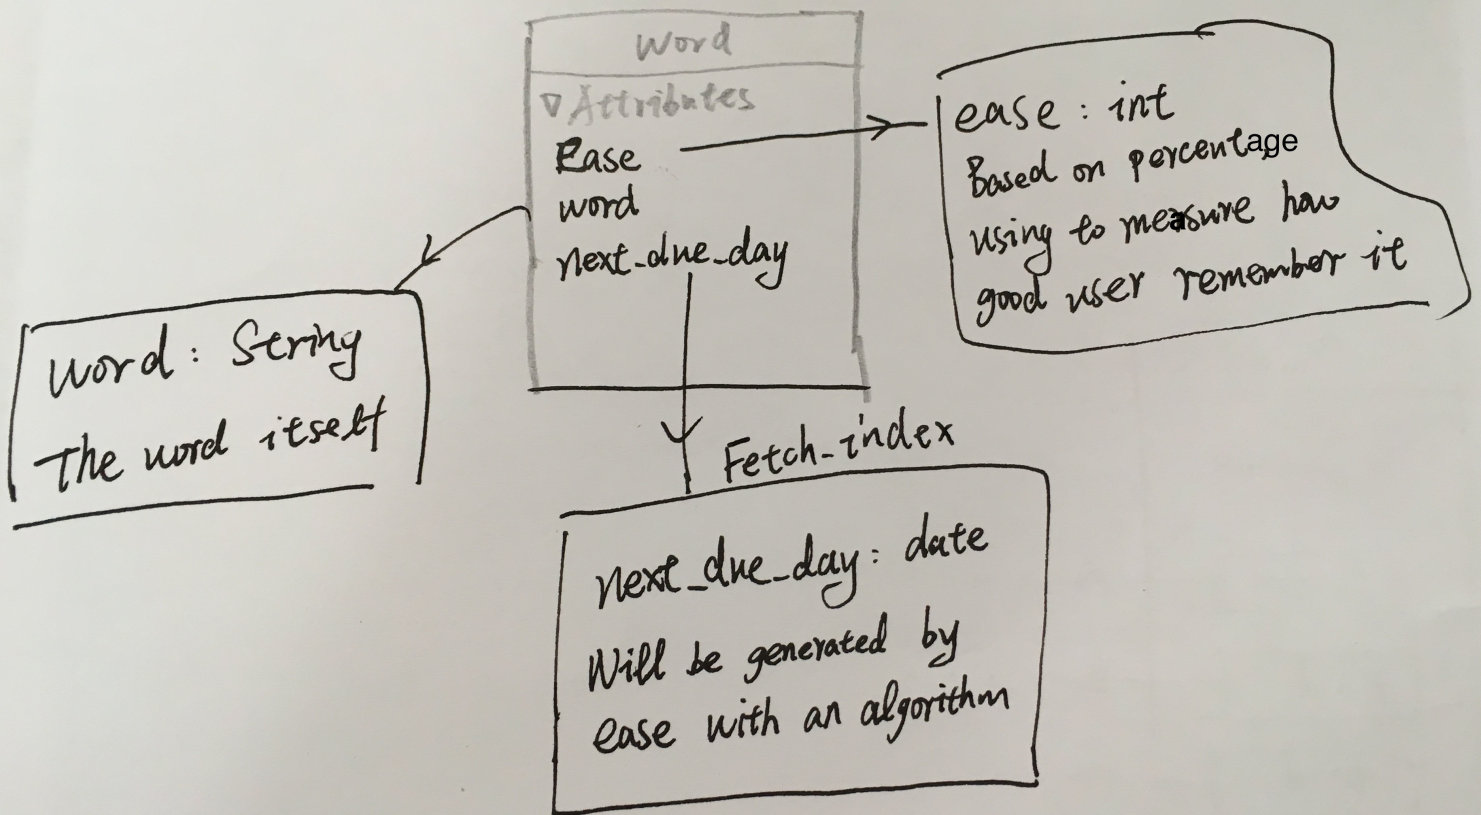 Word
▽ Attributes
Ease
word
next_due_day
ease : int
Based on percentage
using to measure how
good user remember it
word : String
The word itself
Fetch_index
next_due_day : date
Will be generated by
ease with an algorithm